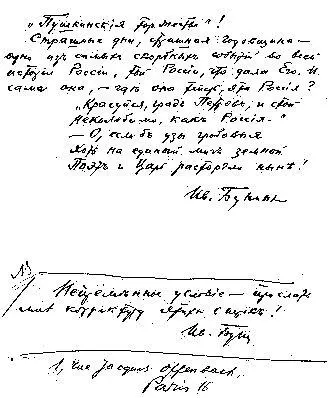 „Пушкинскія торжества"!
Страшные дни, страшная годовщина —
одно изъ самыхъ скорбныхъ событій во всей
исторіи Россіи, той Россіи, что дала Его. И
сама она, — гдѣ она теперь, эта Россія?
„Красуйся, градъ Петровъ, и стой
Неколебимо, какъ Россія."
— О, если бъ узы гробовыя
Хоть на единый мигъ земной
Поэтъ и Царь расторгли нынѣ!
Ив. Бунинъ
Непремѣнное условіе — прислать
мнѣ корректуру этихъ строкъ!
Ив. Бун
1, rue Jacques Offenbach,
Paris 16